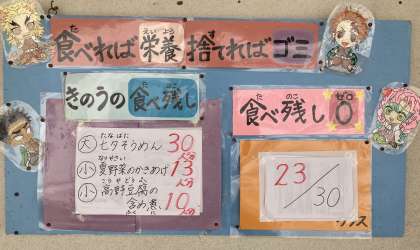 食べれば栄養 捨てればゴミ
きのうの食べ残し
㊛七夕そうめん 30人分
㊙夏野菜のかきあげ 13人分
高野豆腐の
含め煮 10人分
食べ残し0
23/30
クラス